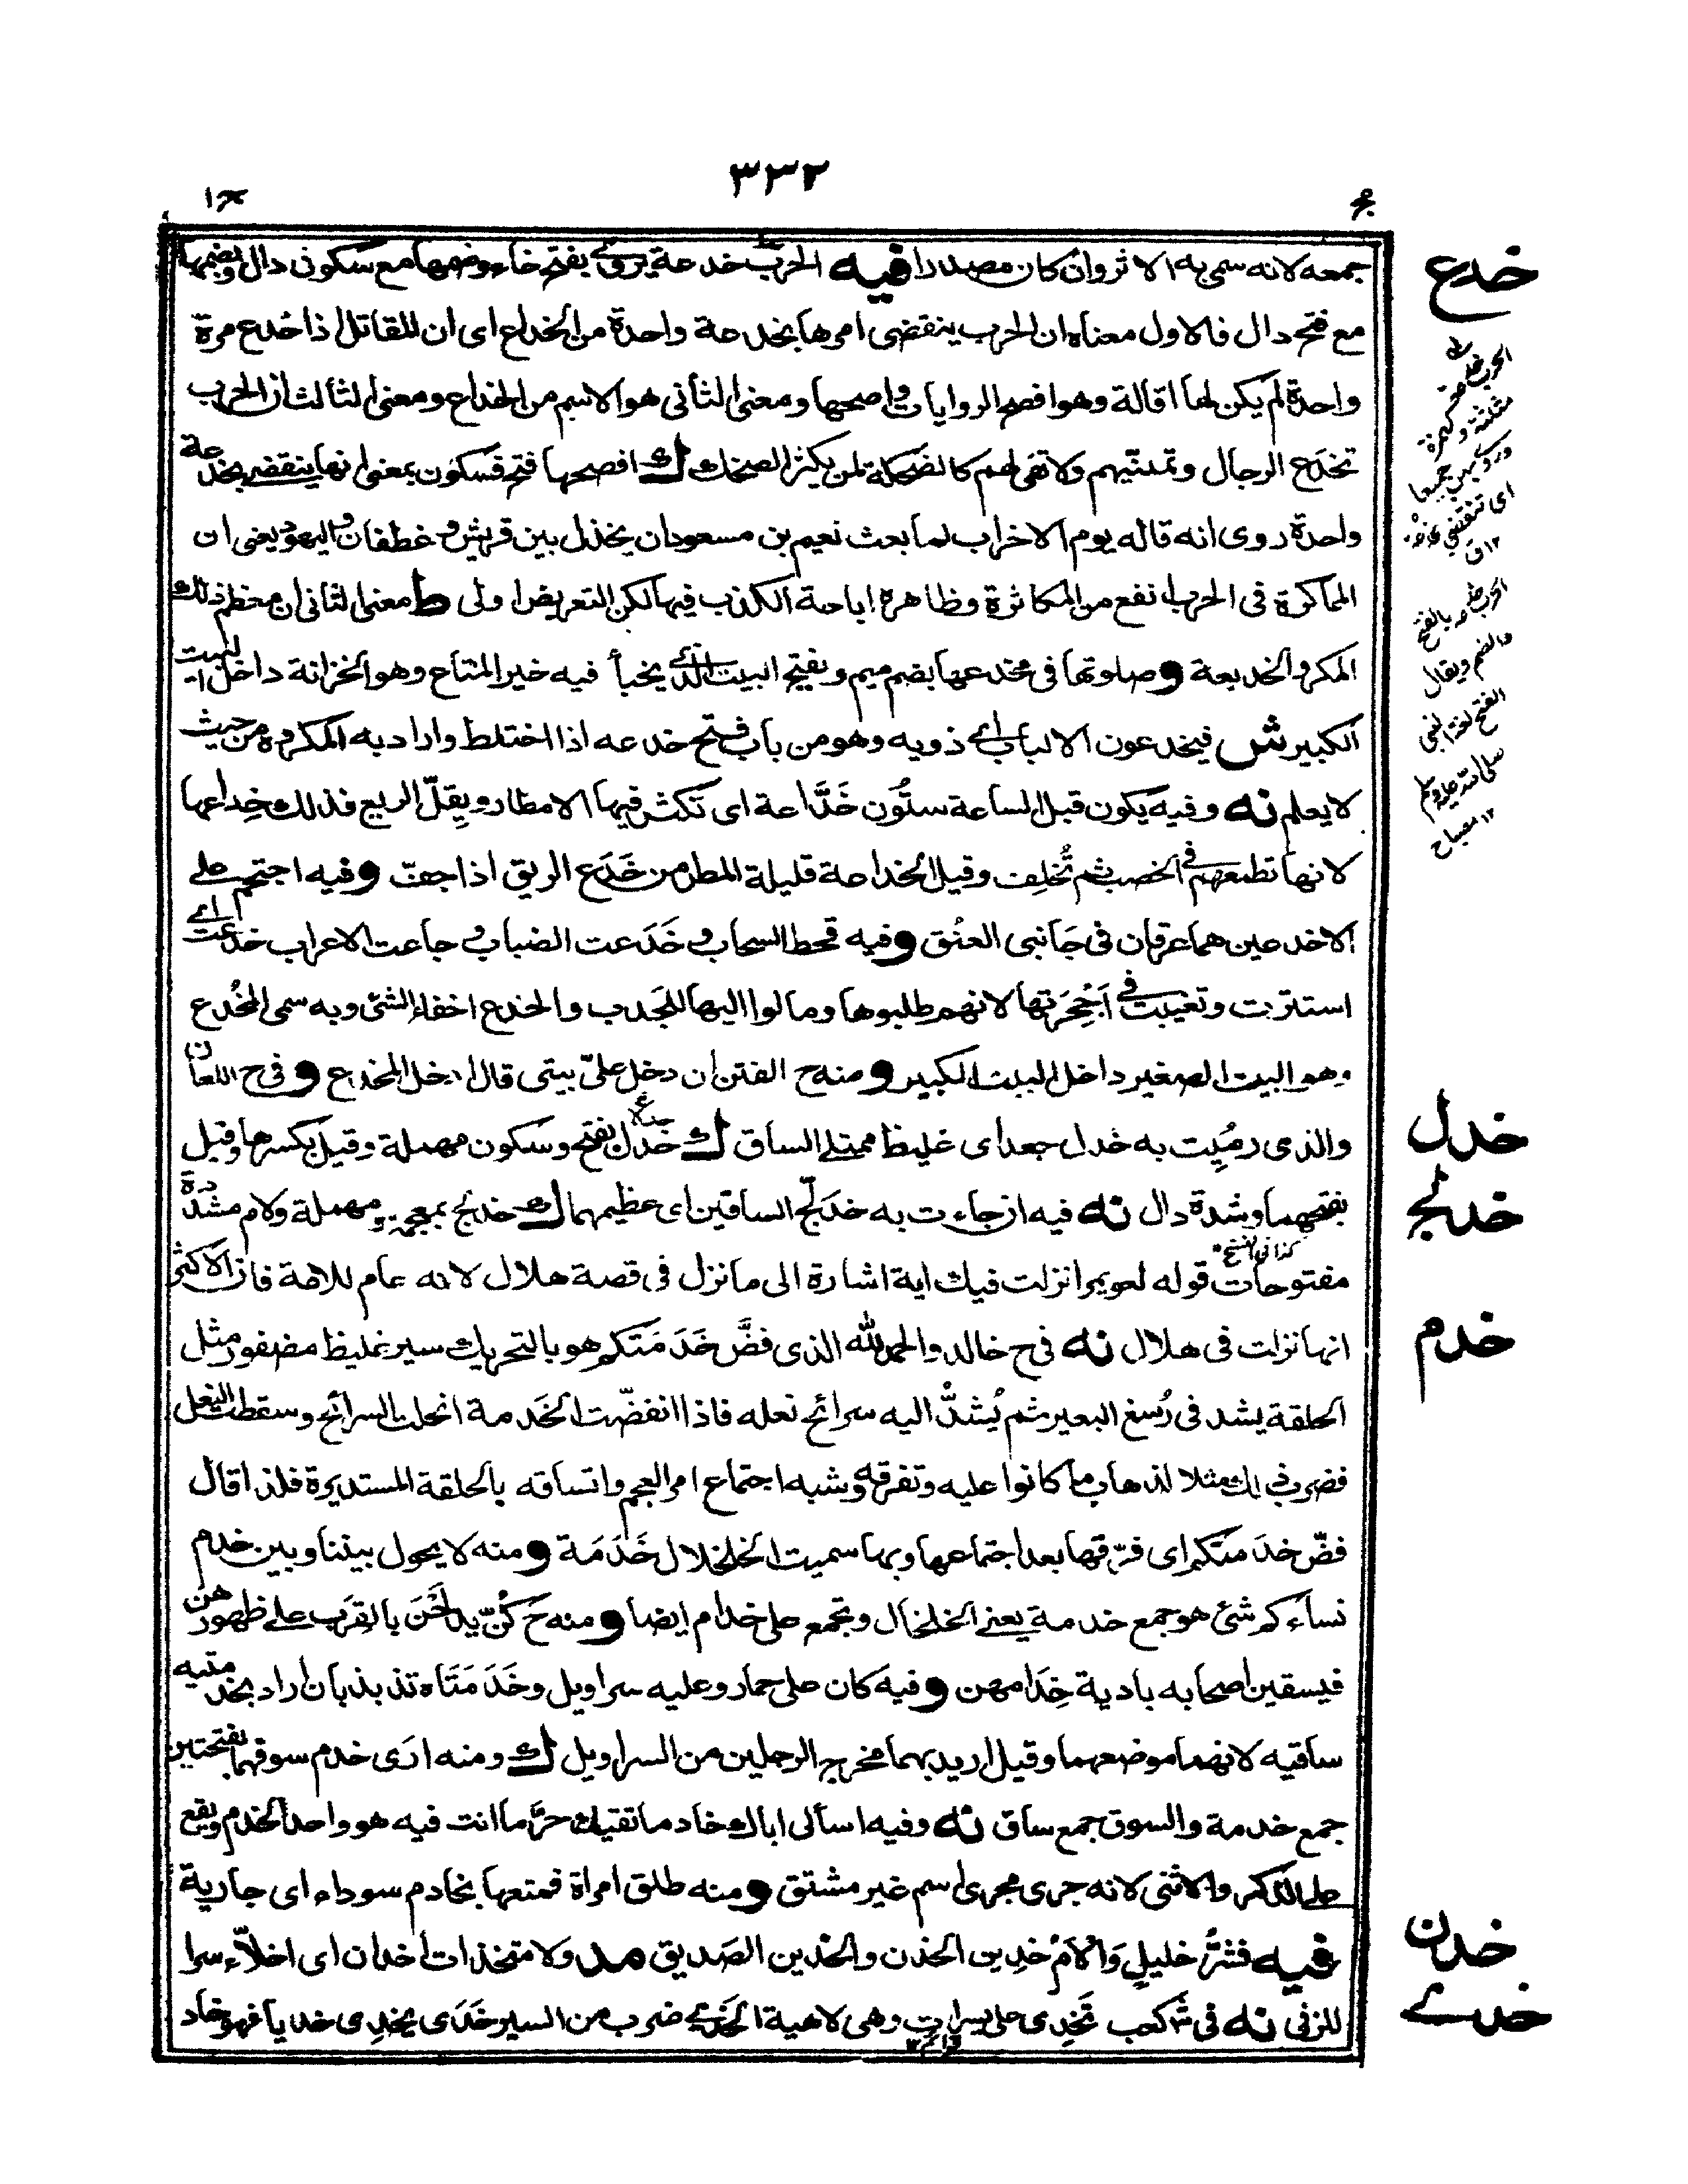 ٣٣٢
جمعه لانه سمي به الاثر وان كان مصدرا فيه الحرب خدعة يروى بفتح خاء وضمها مع سكون دال وبضمها
خدع
مع فتح دال فالاول معناه ان الحرب ينقضى امرها بخدعة واحدة من الخداع اى ان المقاتل اذا خُدع مرة
واحدة لم يكن لها اقالة وهو افصح الروايات واصحها ومعنى الثاني هو الاسم من الخداع ومعنى الثالث ان الحرب
تخدَع الرجال وتمنّيهم ولا تفى لهم كالضُحَكة لمن يكثر الضحك ك افصحها فتح فسكون بمعنى انها ينقضى بخدعة
واحدة روى انه قاله يوم الاحزاب لما بعث نعيم بن مسعود ان يخذل بين قريش وغطفان واليهود يعنى ان
المماكرة فى الحرب انفع من المكاثرة وظاهره اباحة الكذب فيها لكن التعريض اولى ط معنى الثانى ان معظم ذلك
المكر والخديعة و صلوتها فى مخدعها بضم ميم وبفتح البيت الذى يخبأ فيه خير المتاع وهو الخزانة داخل البيت
الكبير ش فيخدعون الالباب اى ذويه وهو من باب فتح خدعه اذا اختله واراد به المكروه من حيث
لا يعلم نه وفيه يكون قبل الساعة سنُون خَدَّاعة اى تكثر فيها الامطار ويقِلّ الريع فذلك خِداعها
لانها تطمعهم فى الخصب ثم تُخلِف وقيل الخداعة قليلة المطر من خَدَع الريق اذا جفّ و فيه احتجم على
الاخدعين هما عرقان فى جَانبى العنُق و فيه قحط السحاب و خَدَعت الضباب و جاعت الاعراب خدعت اى
استترت وتغيبت فى اَجْحِرَتها لانهم طلبوها ومالوا اليها للجَدب والخدع اخفاء الشئ وبه سمى المخْدع
وهو البيت الصغير داخل البيت الكبير و منه ح الفتن ان دخل علىّ بيتى قال ادخل المخدع و فى ح اللعان
والذى رمُيت به خدل جعد اى غليظ ممتلى الساق ك خَدْل بفتح وسكون مهملة وقيل بكسرها وقيل
خدل
بفتحهما وشدة دال نه فيه ان جاءت به خدَلّج الساقين اى عظيمهما ك خدلج بمعجمة ومهملة ولام مشددة
خدلج
كذا فى الفتح
مفتوحات قوله لعويمر انزلت فيك اية اشارة الى ما نزل فى قصة هلال لانه عام للامة فان الاكثر
انها نزلت فى هلال نه فى ح خالد والحمد لله الذى فضَّ خَدَمَتَكم هو بالتحريك سير غليظ مضفور مثل
خدم
الحلقة يشد فى رُسغ البعير ثم يُشدُّ اليه سرائح نعله فاذا انفضّت الخَدمة انحلت السرائح وسقطت النعل
فضرب ذلك مثلا لذهاب ما كانوا عليه وتفرقه وشبه اجتماع امر العجم واتساقه بالحلقة المستديرة فلذا قال
فضّ خدَمتكم اى فرّقها بعد اجتماعها وبها سميت الخلخال خَدَمَة و منه لا يحول بيننا وبين خدم
نساءكم شئ هو جمع خدمة يعنى الخلخال وتجمع على خدام ايضا و منه ح كُنّ يدلحْنَ بالقرَب على ظهورهن
فيسقين اصحابه بادية خِدَامهن و فيه كان على حمار وعليه سراويل وخَدَمَتَاه تذبذبان اراد بخدمتيه
ساقيه لانهما موضعهما وقيل اريد بهما مخرج الرجلين من السراويل ك ومنه ارَى خدم سوقهما بفتحتين
جمع خدمة والسوق جمع ساق نه وفيه اسألى اباك خادما تقيك حرَّ ما انت فيه هو واحد الخدم ويقع
على الذكر والانثى لانه جرى مجرى اسم غير مشتق و منه طلق امراة فمتعها بخادم سوداء اى جارية
فيه فشرُّ خليلٍ وَالْاَمُ خدِين الخدن والخدين الصَديق مد ولا متخذات اخدان اى اخلاّء سرا
خدن
للزنى نه فى شعر كعب تَخْدِى على يسرات وهى لاهية الخَدْى ضرب من السير خَدَى يخدِى خديا فهو خاد
خدى
قوائم ١٢
الحرب خدعة
مثلثة وكهمزة
وروى بهن جميعا
اى تنقضي بخدعة
١٢ ق
الحرب خدعة بالفتح
والضم ويقال
الفتح لغة النبي
صلى الله عليه وسلم
١٢ مصباح